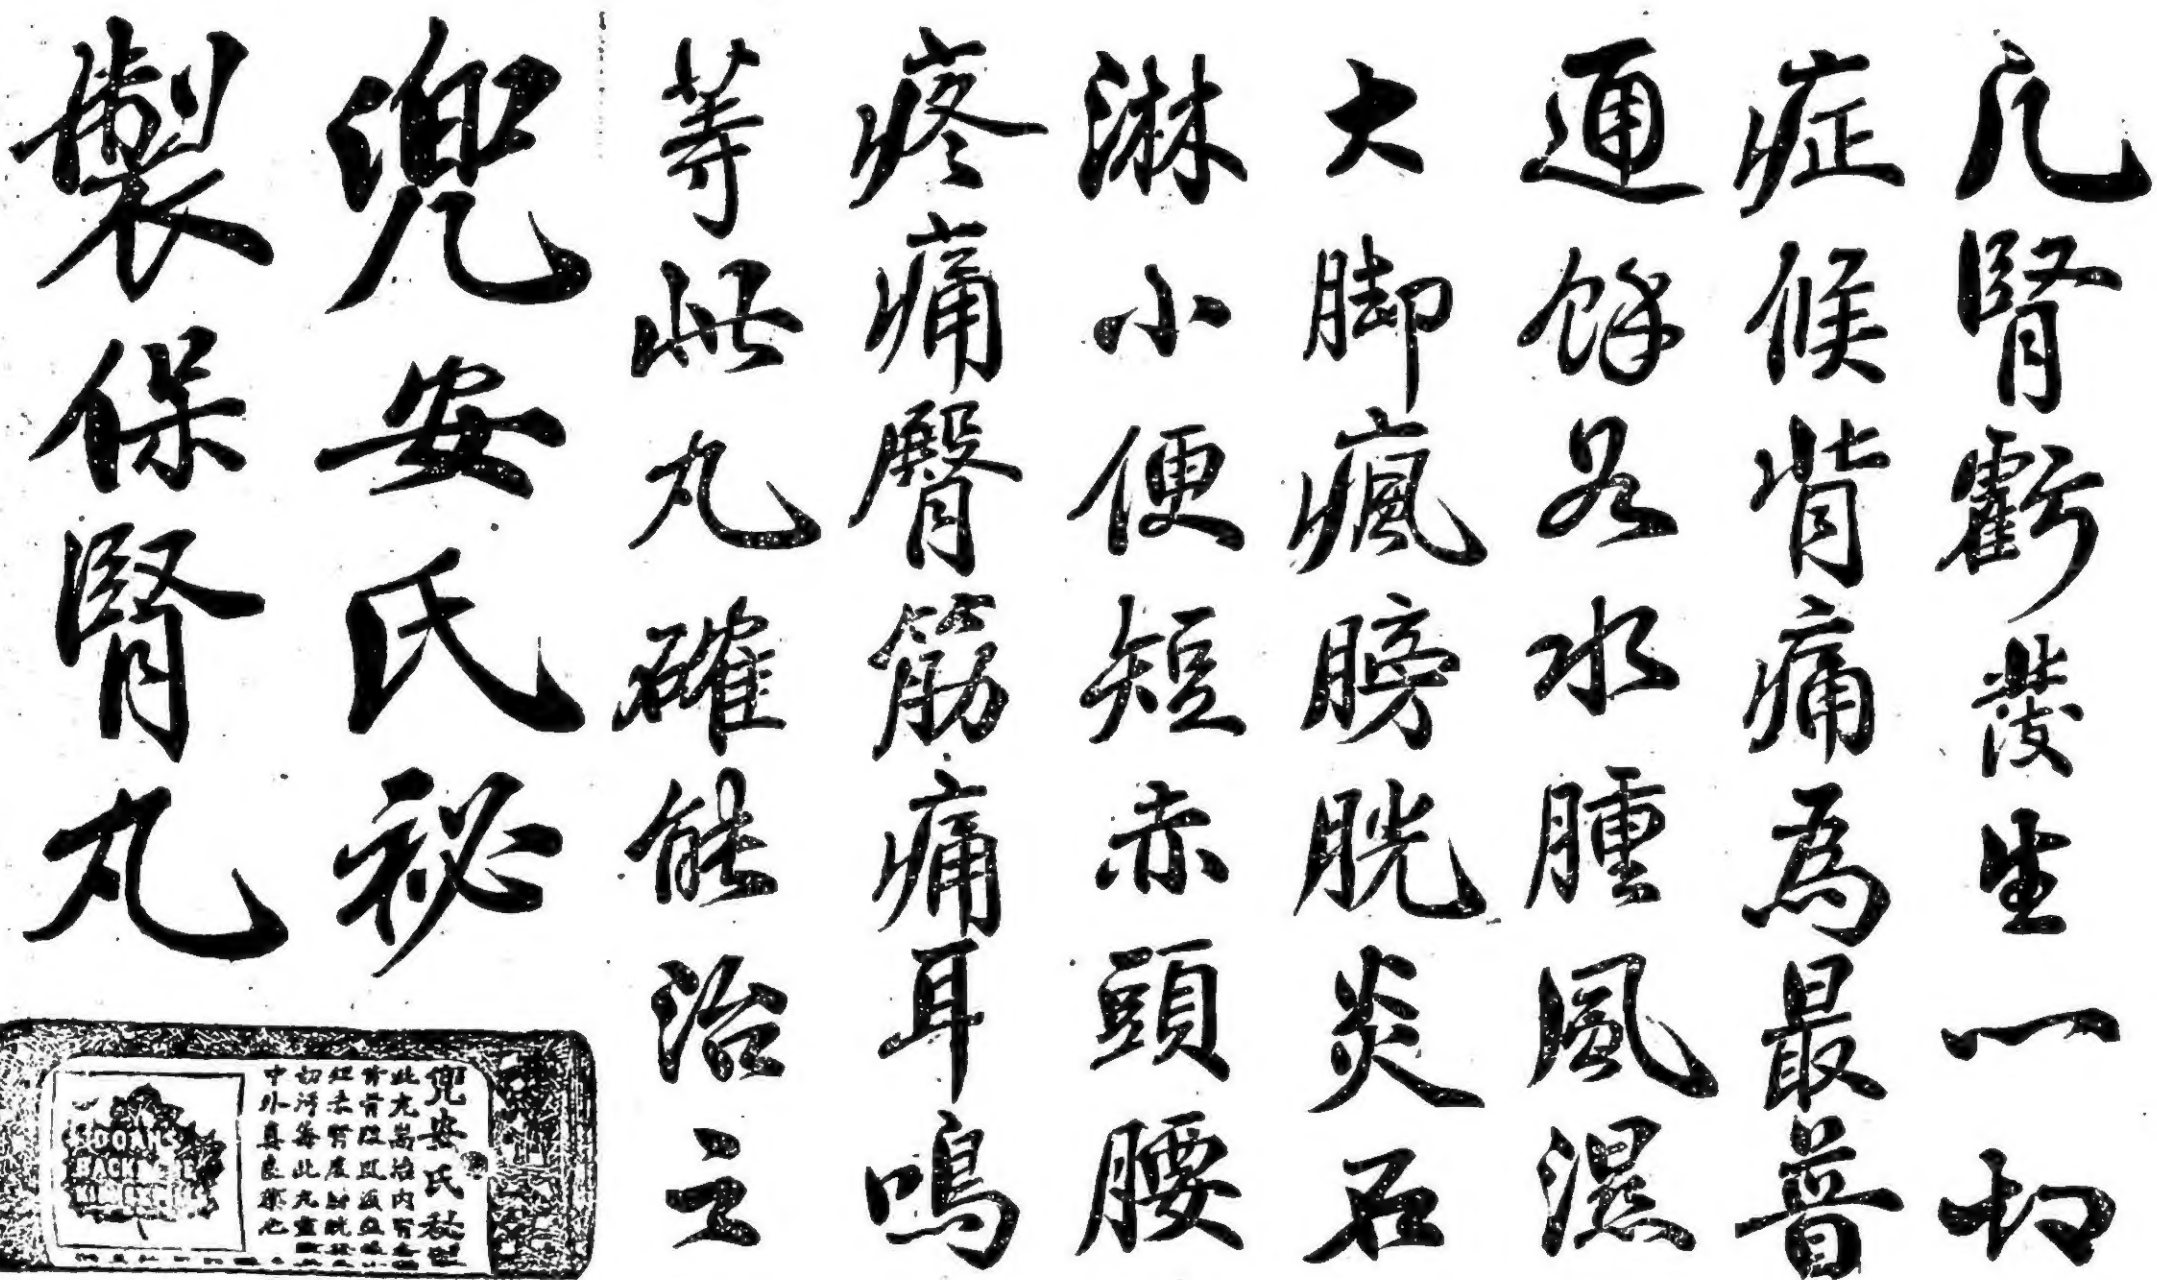 凡腎虧發生一切
症候背痛為最普
通餘若水腫風濕
大脚瘋膀胱炎石
淋小便短赤頭腰
疼痛臀筋痛耳鳴
等此丸確能治之
兜安氏祕
製保腎丸
兜安氏秘製
此丸耑治內腎
切淋等此丸靈
中外真良藥也
DOAN'S
BACKACHE
KIDNEY PILLS